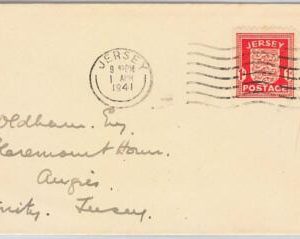 JERSEY
9 PM
1 APR
1941
JERSEY
POSTAGE
Oldham. Esq
Claremont House.
Augrès.
Trinity. Jersey.